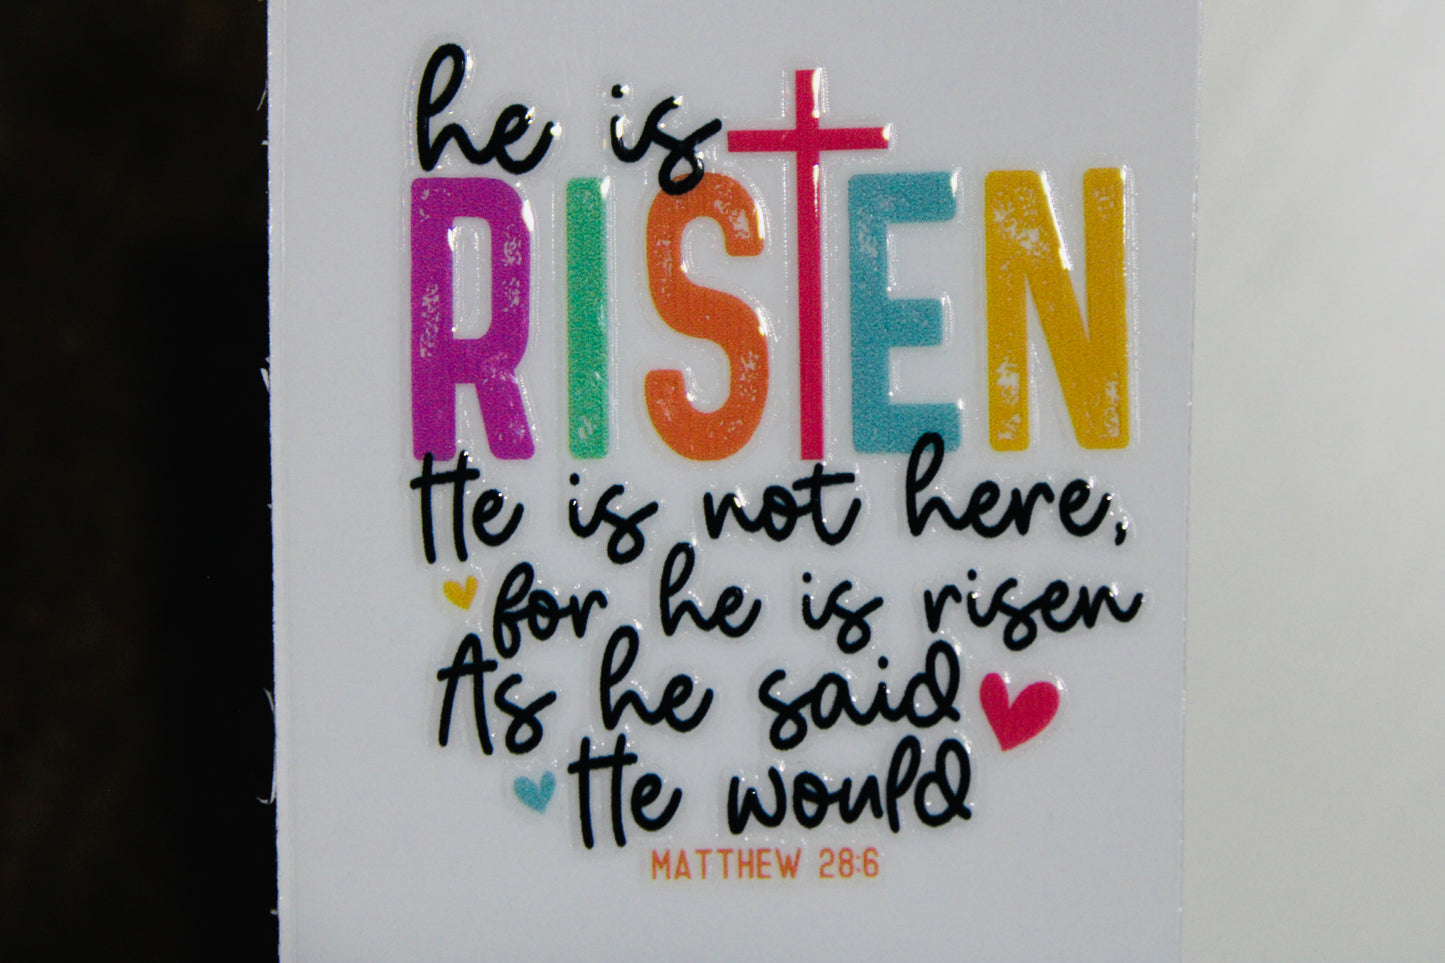 he is
RISTEN
He is not here,
for he is risen
As he said
He would
MATTHEW 28:6